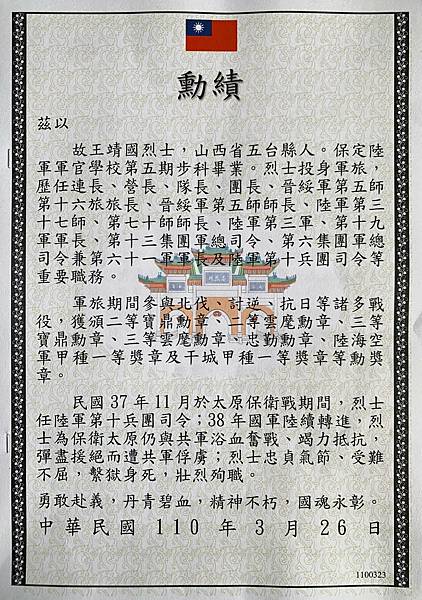 勳績
茲以
故王靖國烈士，山西省五台縣人。保定陸
軍軍官學校第五期步科畢業。烈士投身軍旅，
歷任連長、營長、隊長、團長、晉綏軍第五師
第十六旅旅長、晉綏軍第五師師長、陸軍第三
十七師、第七十師師長、陸軍第三軍、第十九
軍軍長、第十三集團軍總司令、第六集團軍總
司令兼第六十一軍軍長及陸軍第十兵團司令等
重要職務。
軍旅期間參與北伐、討逆、抗日等諸多戰
役，獲頒二等寶鼎勳章、二等雲麾勳章、三等
寶鼎勳章、三等雲麾勳章、忠勤勳章、陸海空
軍甲種一等獎章及干城甲種一等獎章等勳獎
章。
民國37年11月於太原保衛戰期間，烈士
任陸軍第十兵團司令；38年國軍陸續轉進，烈
士為保衛太原仍與共軍浴血奮戰、竭力抵抗，
彈盡援絕而遭共軍俘虜；烈士忠貞氣節、受難
不屈，繫獄身死，壯烈殉職。
勇敢赴義，丹青碧血，精神不朽，國魂永彰。
中華民國 110 年 3 月 26 日
1100323